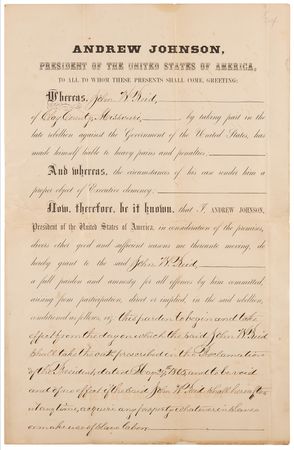 ANDREW JOHNSON,
PRESIDENT OF THE UNITED STATES OF AMERICA,
TO ALL TO WHOM THESE PRESENTS SHALL COME, GREETING:
Whereas, John W. Reid,
of Clay County, Missouri, by taking part in the
late rebellion against the Government of the United States, has
made himself liable to heavy pains and penalties;
And whereas, the circumstances of his case render him a
proper object of Executive clemency;
Now, therefore, be it known, that I, ANDREW JOHNSON,
President of the United States of America, in consideration of the premises,
divers other good and sufficient reasons me thereunto moving, do
hereby grant to the said John W. Reid
a full pardon and amnesty for all offences by him committed,
arising from participation, direct or implied, in the said rebellion,
conditioned as follows, viz: this pardon to begin and take
effect from the day on which the said John W. Reid
shall take the oath prescribed in the Proclamation
of the President, dated May 29, 1865, and to be void
and of no effect if the said John W. Reid shall hereafter
at any time, acquire any property whatever in slaves
or make use of slave labor